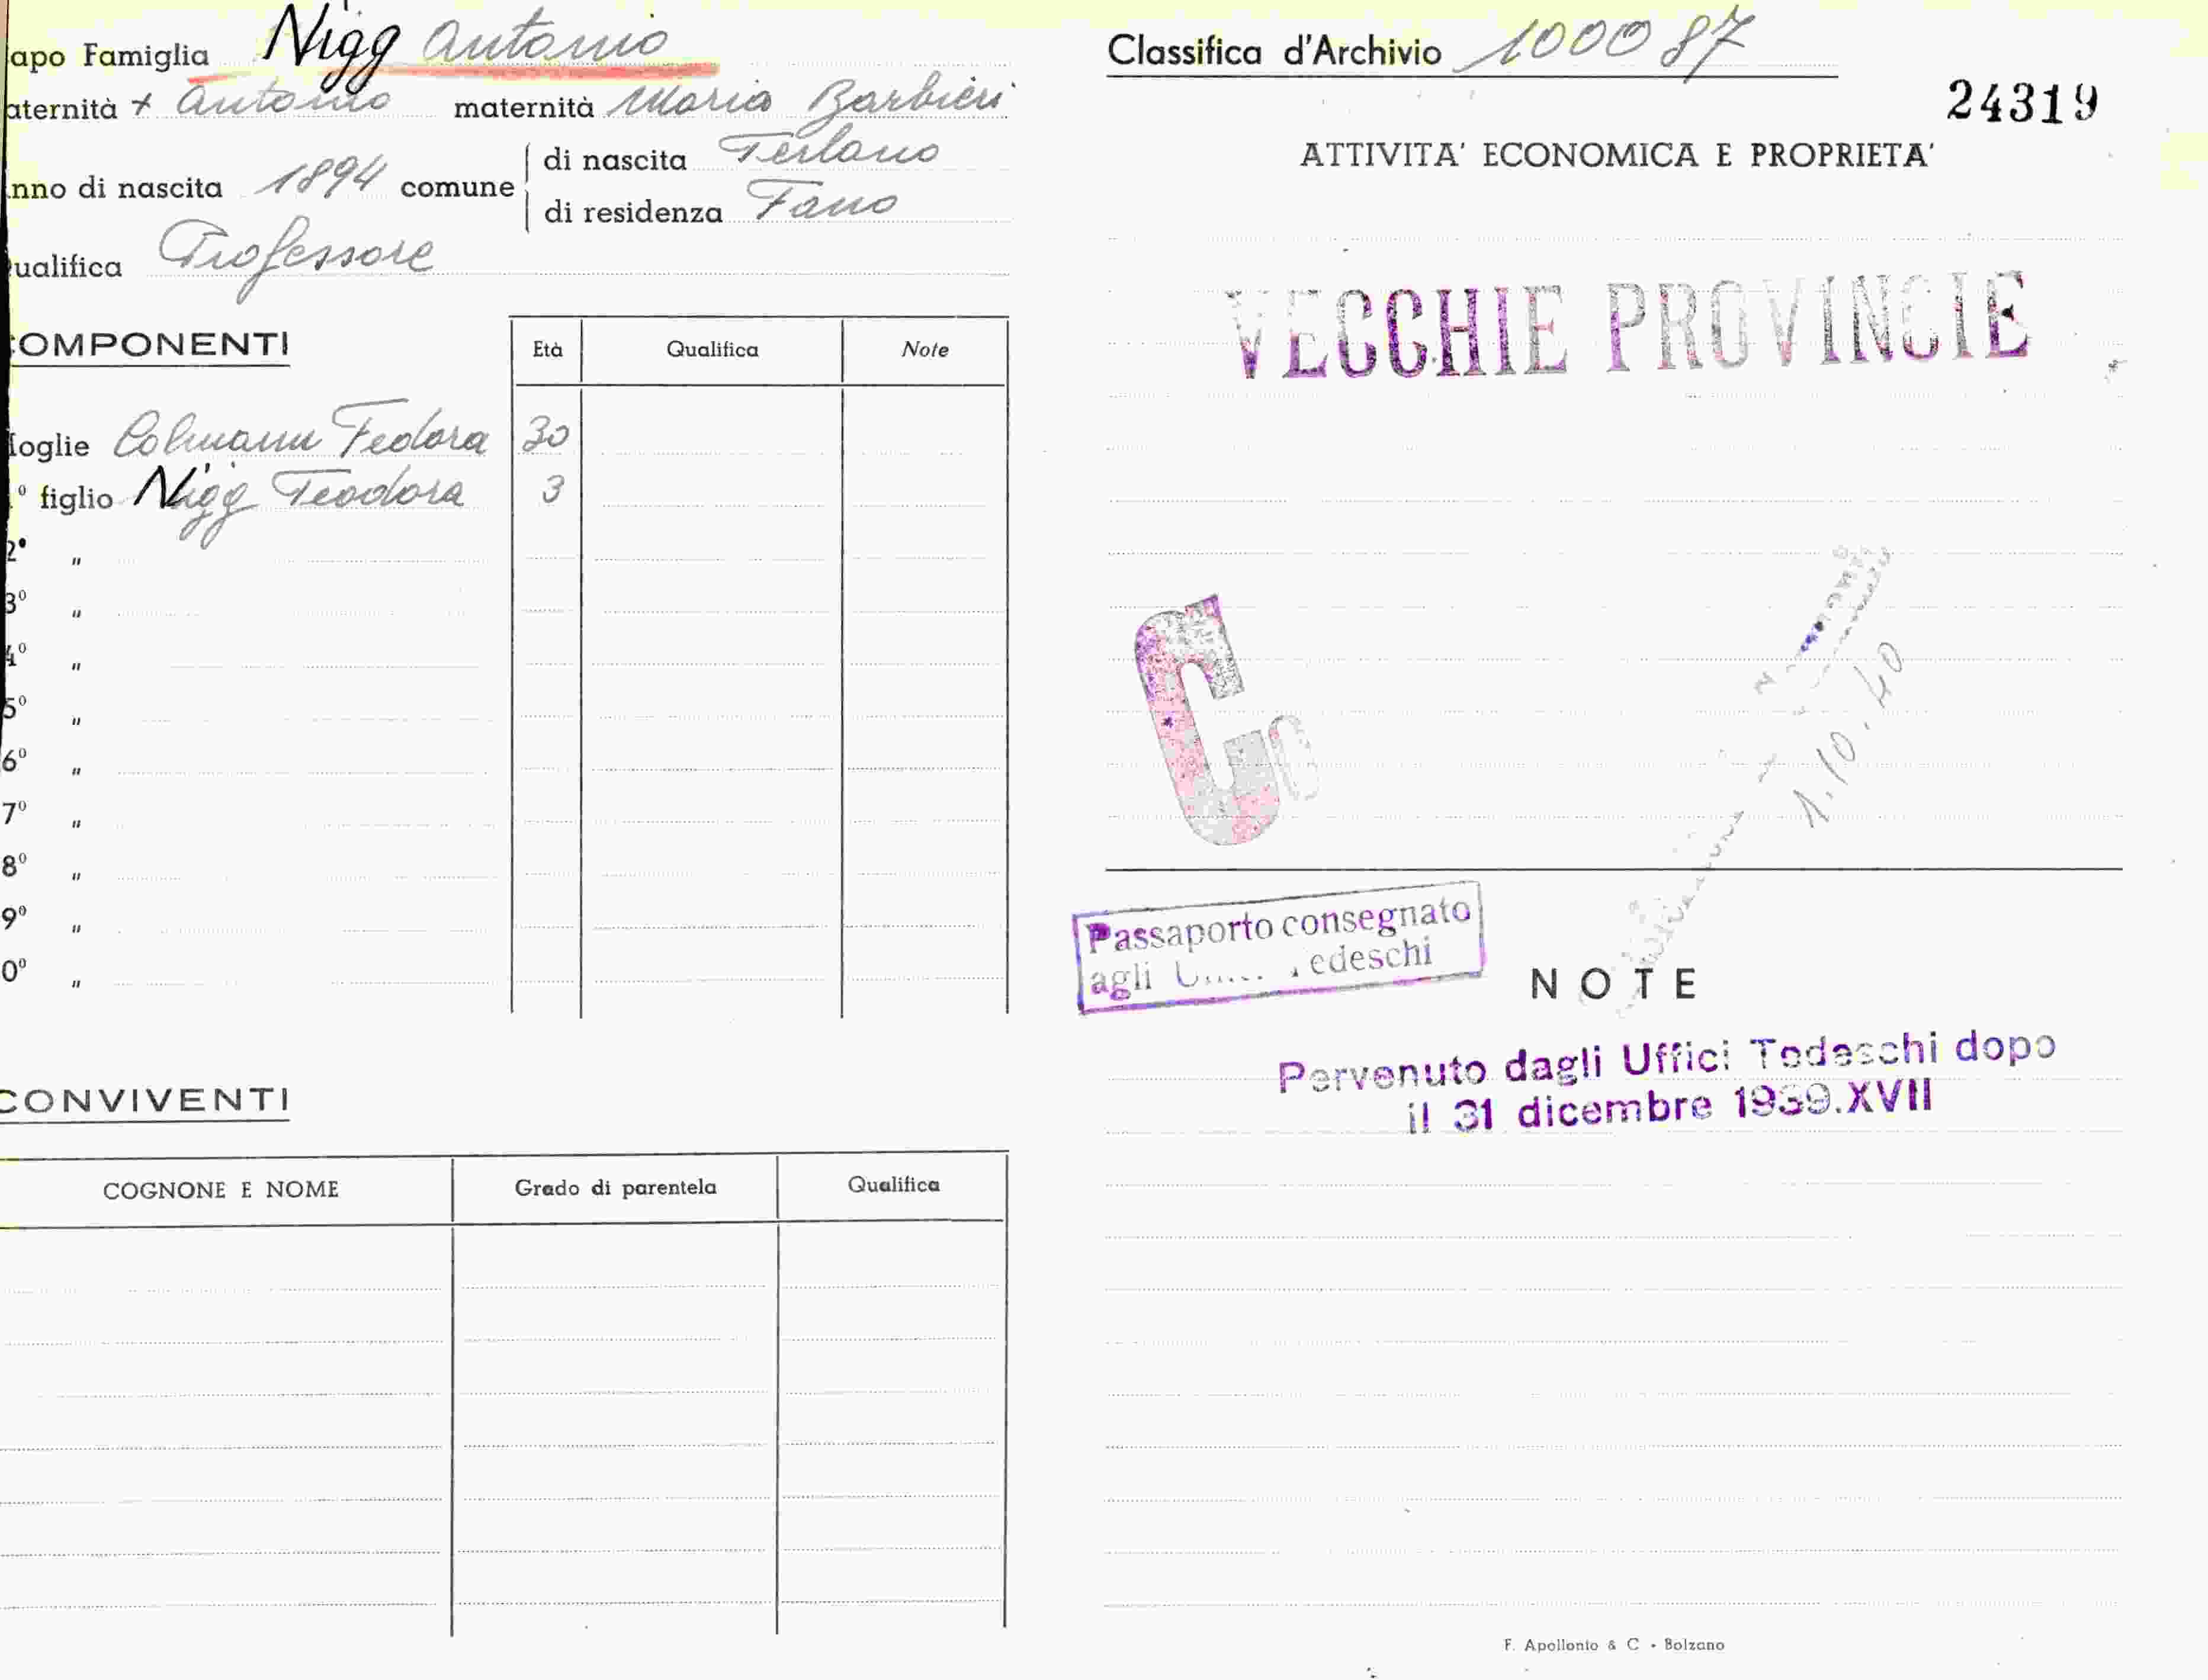 apo Famiglia Nigg Antonio
aternità + Antonio maternità Maria Barbieri
nno di nascita 1894 comune di nascita Terlano
di residenza Fano
ualifica Professore
OMPONENTI Età Qualifica Note
oglie Colmann Fedora 30
º figlio Nigg Teodora 3
2º "
3º "
4º "
5º "
6º "
7º "
8º "
9º "
0º "
CONVIVENTI
COGNONE E NOME Grado di parentela Qualifica
Classifica d'Archivio 1000 87
24319
ATTIVITA' ECONOMICA E PROPRIETA'
VECCHIE PROVINCIE
C
1.10.40
Passaporto consegnato
agli edeschi
NOTE
Pervenuto dagli Uffici Tedeschi dopo
il 31 dicembre 1939.XVII
F. Apollonio & C - Bolzano